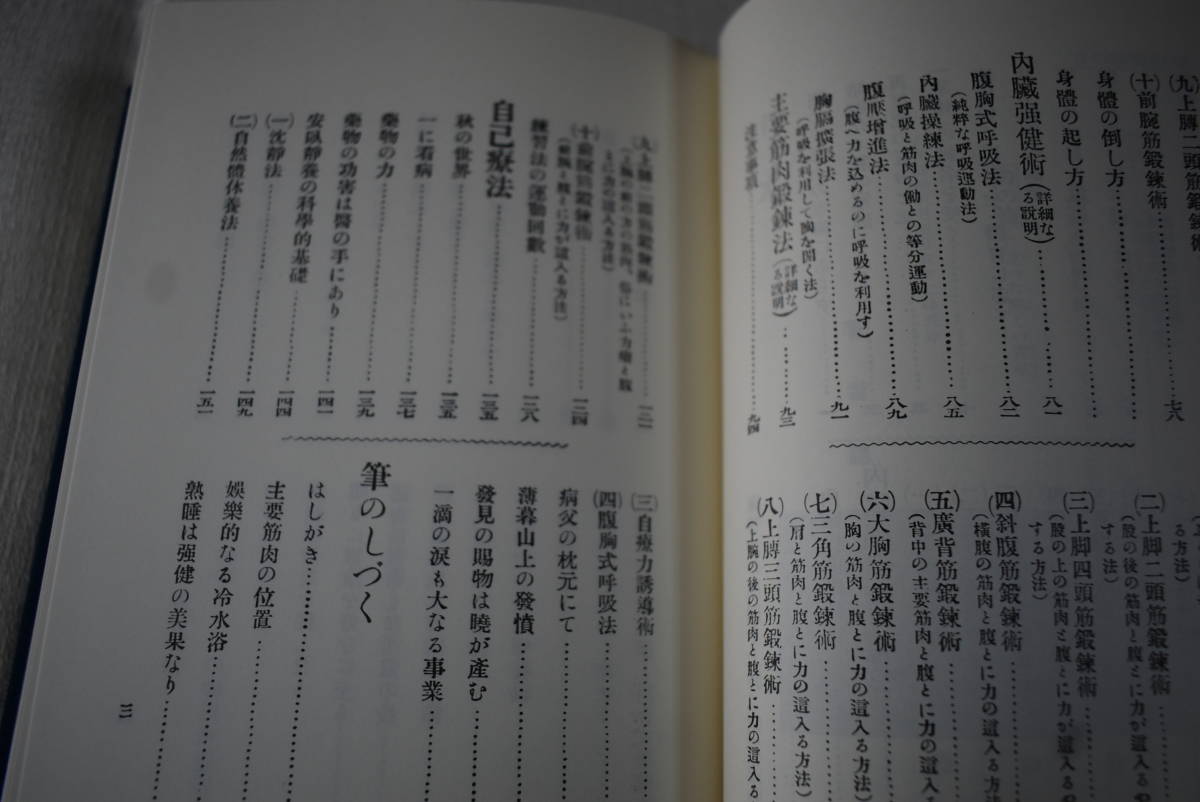 (九)上膊二頭筋鍛鍊術
(十)前腕筋鍛鍊術……七八
身體の倒し方
身體の起し方
內臟强健術(詳細な る說明)……八一
腹胸式呼吸法……八二
(純粹な呼吸運動法)
內臟操練法……八五
(呼吸と筋肉の働との等分運動)
腹壓增進法……八九
(腹へ力を込めるのに呼吸を利用す)
胸腦擴張法……九一
(呼吸を利用して胸を開く法)
主要筋肉鍛鍊法(詳細な る說明)……九三
注意事項……九四
る方法)
(二)上脚二頭筋鍛鍊術
(股の後の筋肉と腹とに力が這入る
する方法)
(三)上脚四頭筋鍛鍊術
(股の上の筋肉と腹とに力が這入る
する方法)
(四)斜腹筋鍛鍊術
(橫腹の筋肉と腹とに力の這入る方
(五)廣背筋鍛鍊術
(背中の主要筋肉と腹とに力の這入
(六)大胸筋鍛鍊術
(胸の筋肉と腹とに力の這入る方法)
(七)三角筋鍛鍊術
(肩と筋肉と腹とに力の這入る方法)
(八)上膊三頭筋鍛鍊術
(上腕の後の筋肉と腹とに力の這入る
(九)上膊二頭筋鍛鍊術……一三二
(十)前腕筋鍛鍊術……一三四
(前腕と腹とに力が這入る方法)
練習法の運動回數……一二八
自己療法
秋の世界……一三五
一に看病……一三五
藥物の力……一三七
藥物の功害は醫の手にあり……一三九
安臥靜養の科學的基礎……一四一
(一)沈靜法……一四四
(二)自然體休養法……一四九
……一五一
(三)自療力誘導術
(四)腹胸式呼吸法
病父の枕元にて
薄暮山上の發憤
發見の賜物は曉が產む
一滴の淚も大なる事業
筆のしづく
はしがき
主要筋肉の位置
娛樂的なる冷水浴
熟睡は强健の美果なり
三